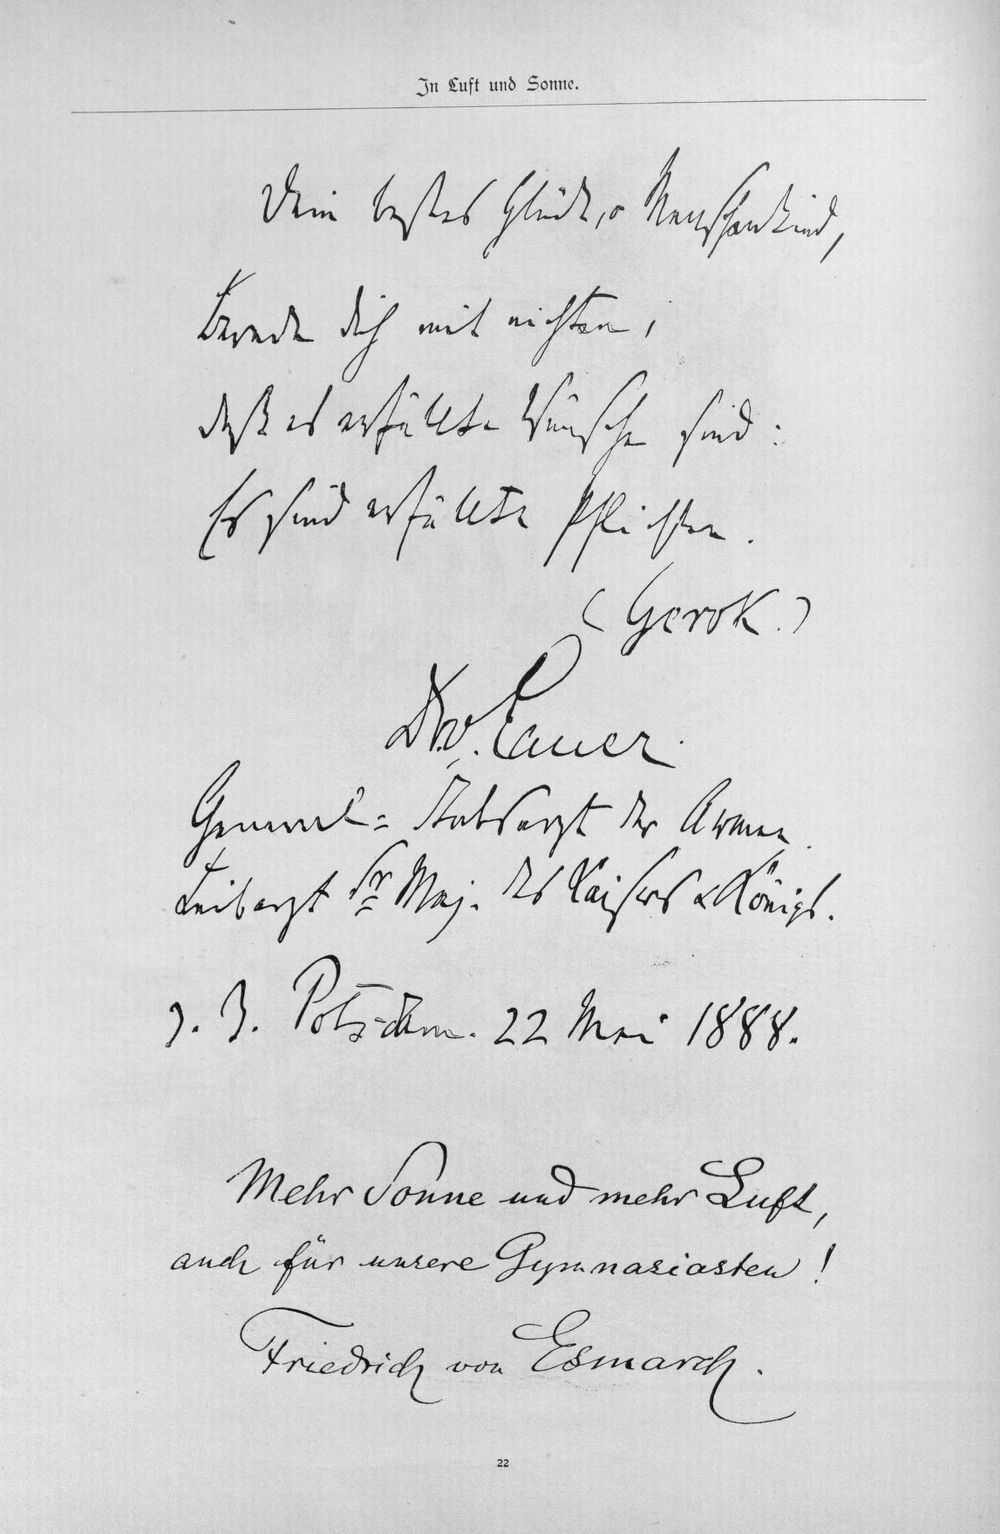 In Luft und Sonne.
Dein bestes Glück, o Menschenkind,
Berede dich mit nichten,
Daß es erfüllte Wünsche sind:
Es sind erfüllte Pflichten.
(Gerok.)
Dr. v. Lauer.
General=Stabsarzt der Armee
Leibarzt Sr Maj. des Kaisers & Königs.
z. Z. Potsdam. 22 Mai 1888.
Mehr Sonne und mehr Luft,
auch für unsere Gymnasiasten!
Friedrich von Esmarch.
22